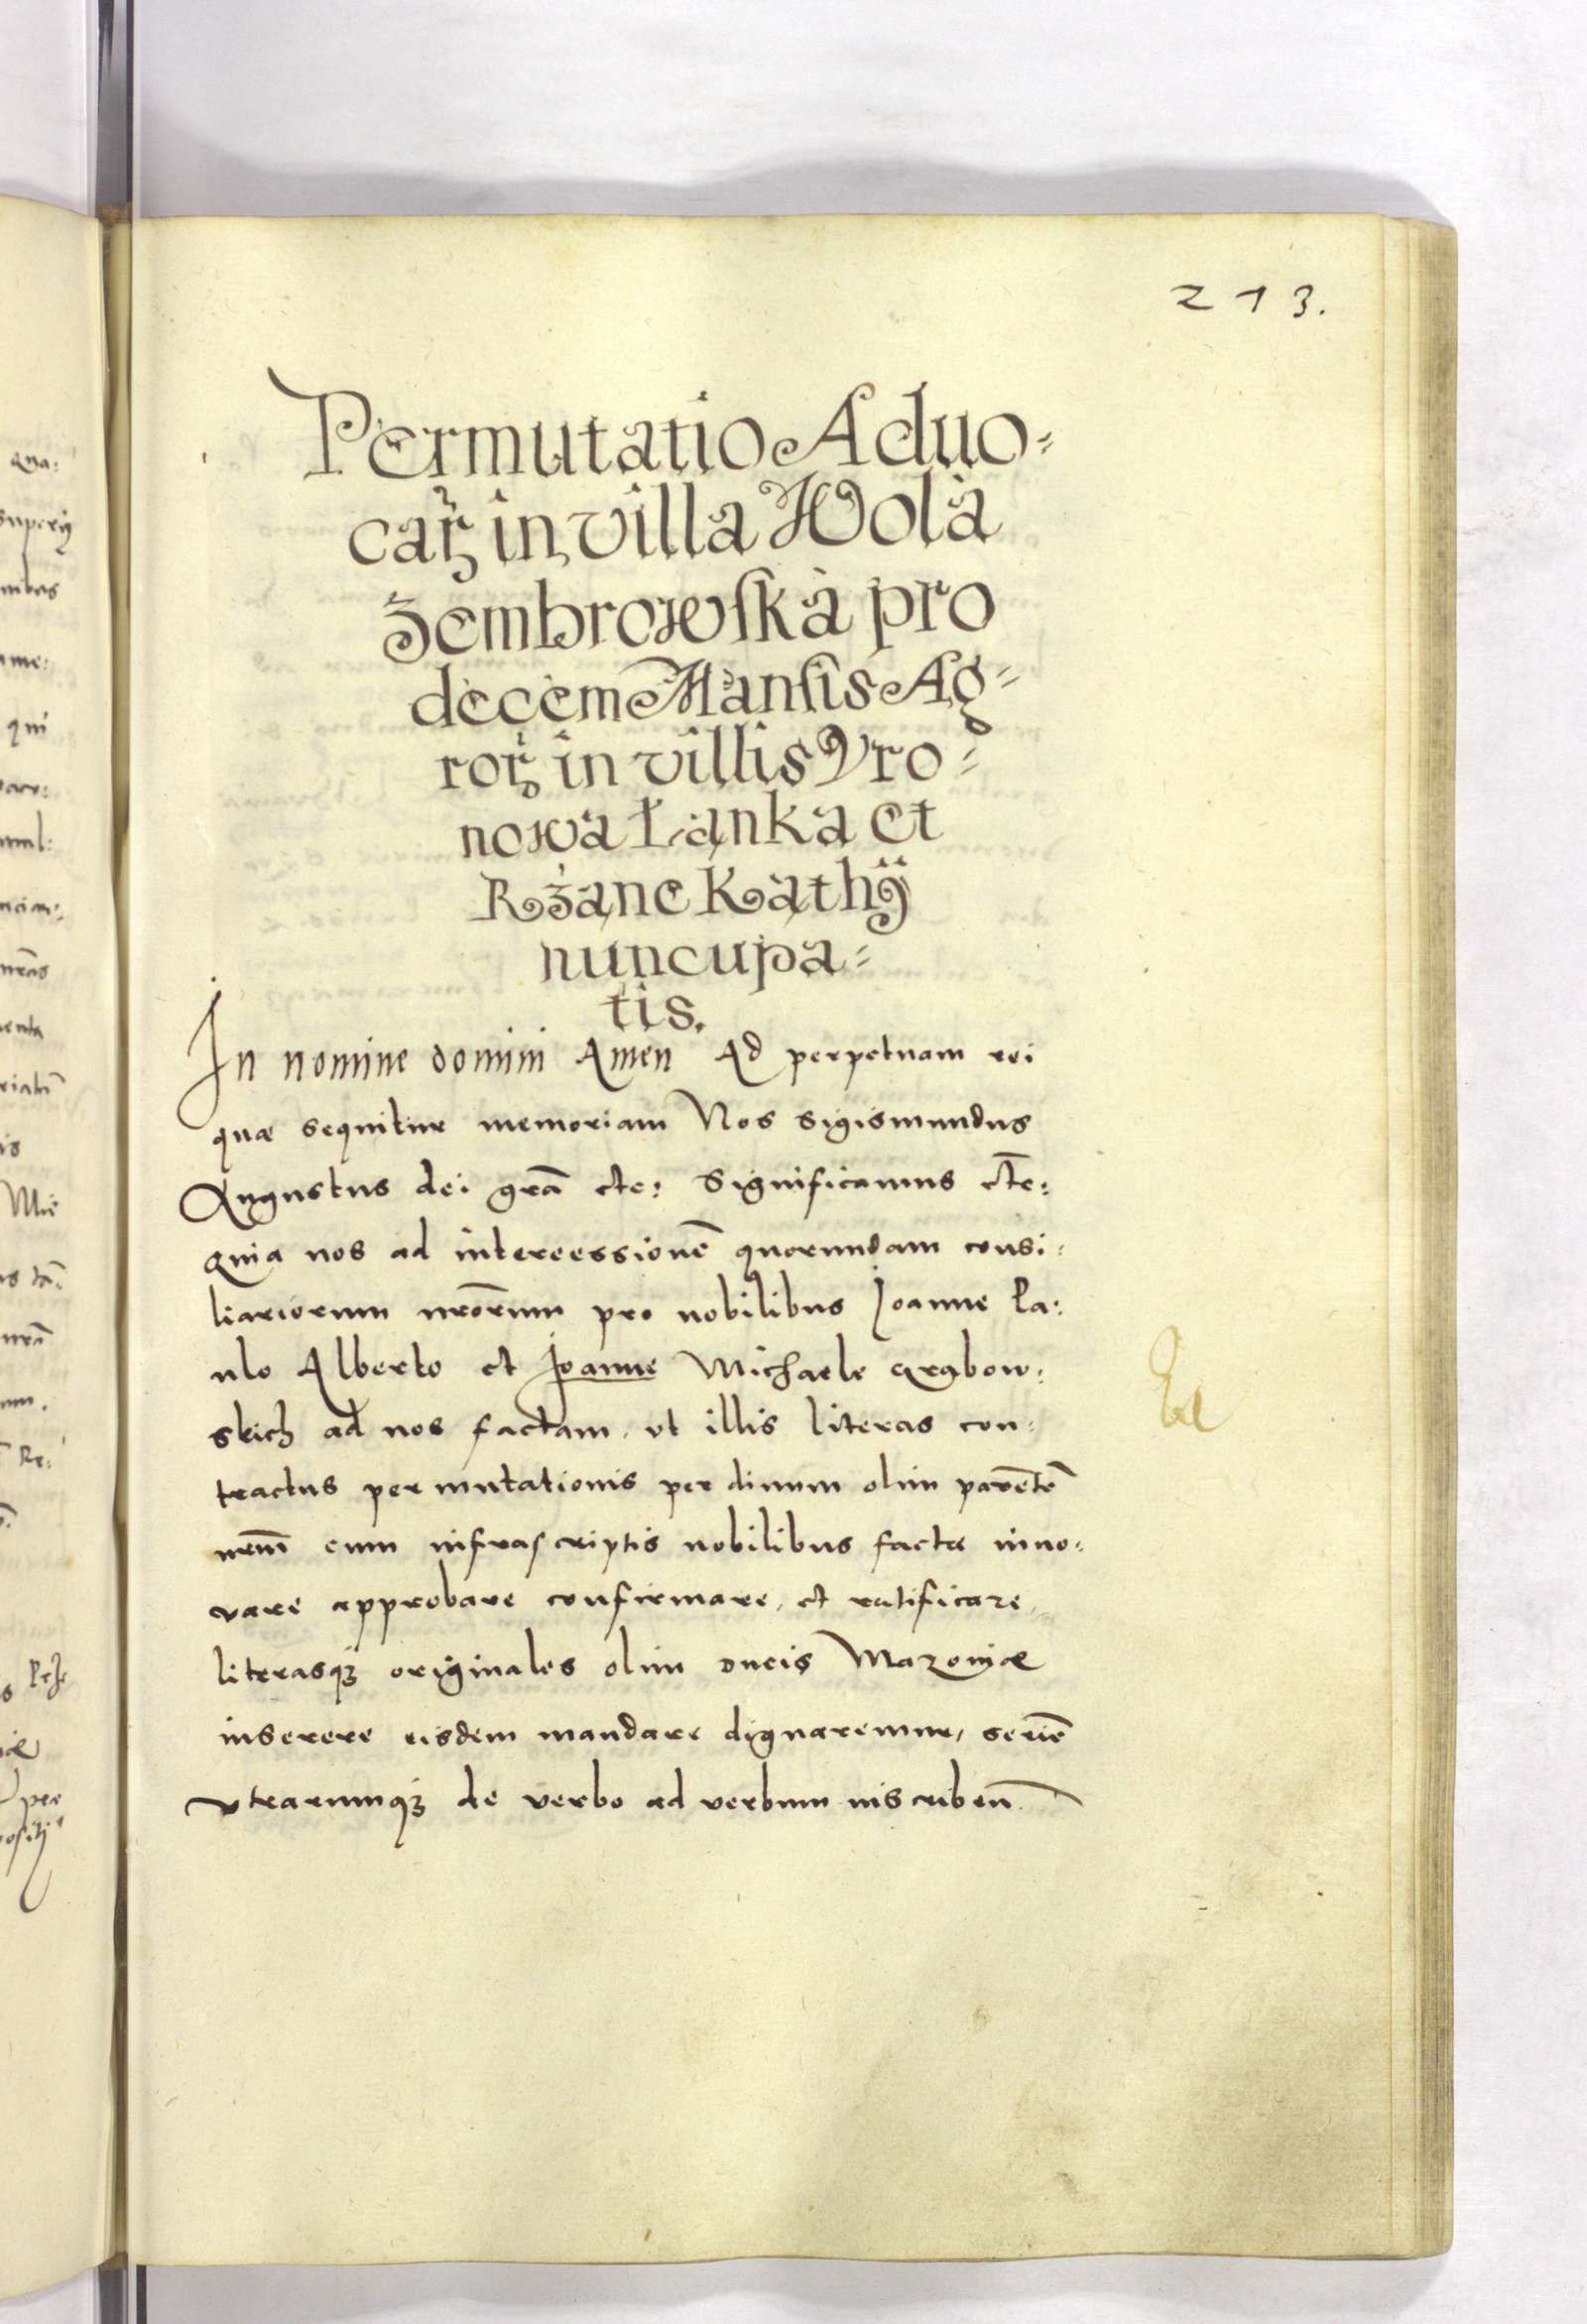 213.
Permutatio Aduo=
caꝝ in villa Wola
Zembrowſka pro
decem Manſis Ag=
roꝝ in villis Yro=
nowa Łanka et
Rzane Kathÿ
nuncupa=
tis.
In nomine domini Amen Ad perpetuam rei
quæ sequitur memoriam Nos Sigismundus
Augustus dei grã etc: Significamus etc:
quia nos ad intercessionẽ quorundam consi:
liariorum nrõrum pro nobilibus Joanne Pa:
ulo Alberto et Joanne Michaele Grabow:
skich ad nos factam, ut illis literas con:
tractus per mutationis per diuum olim parẽtẽ
nrũm cum infraſcriptis nobilibus factæ inno:
vare approbare confirmare, et ratificare,
literasqꝫ originales olim ducis Mazouiæ
inserere eisdem mandare dignaremur, seriẽ
vtrarumqꝫ de verbo ad verbum inscribeñ